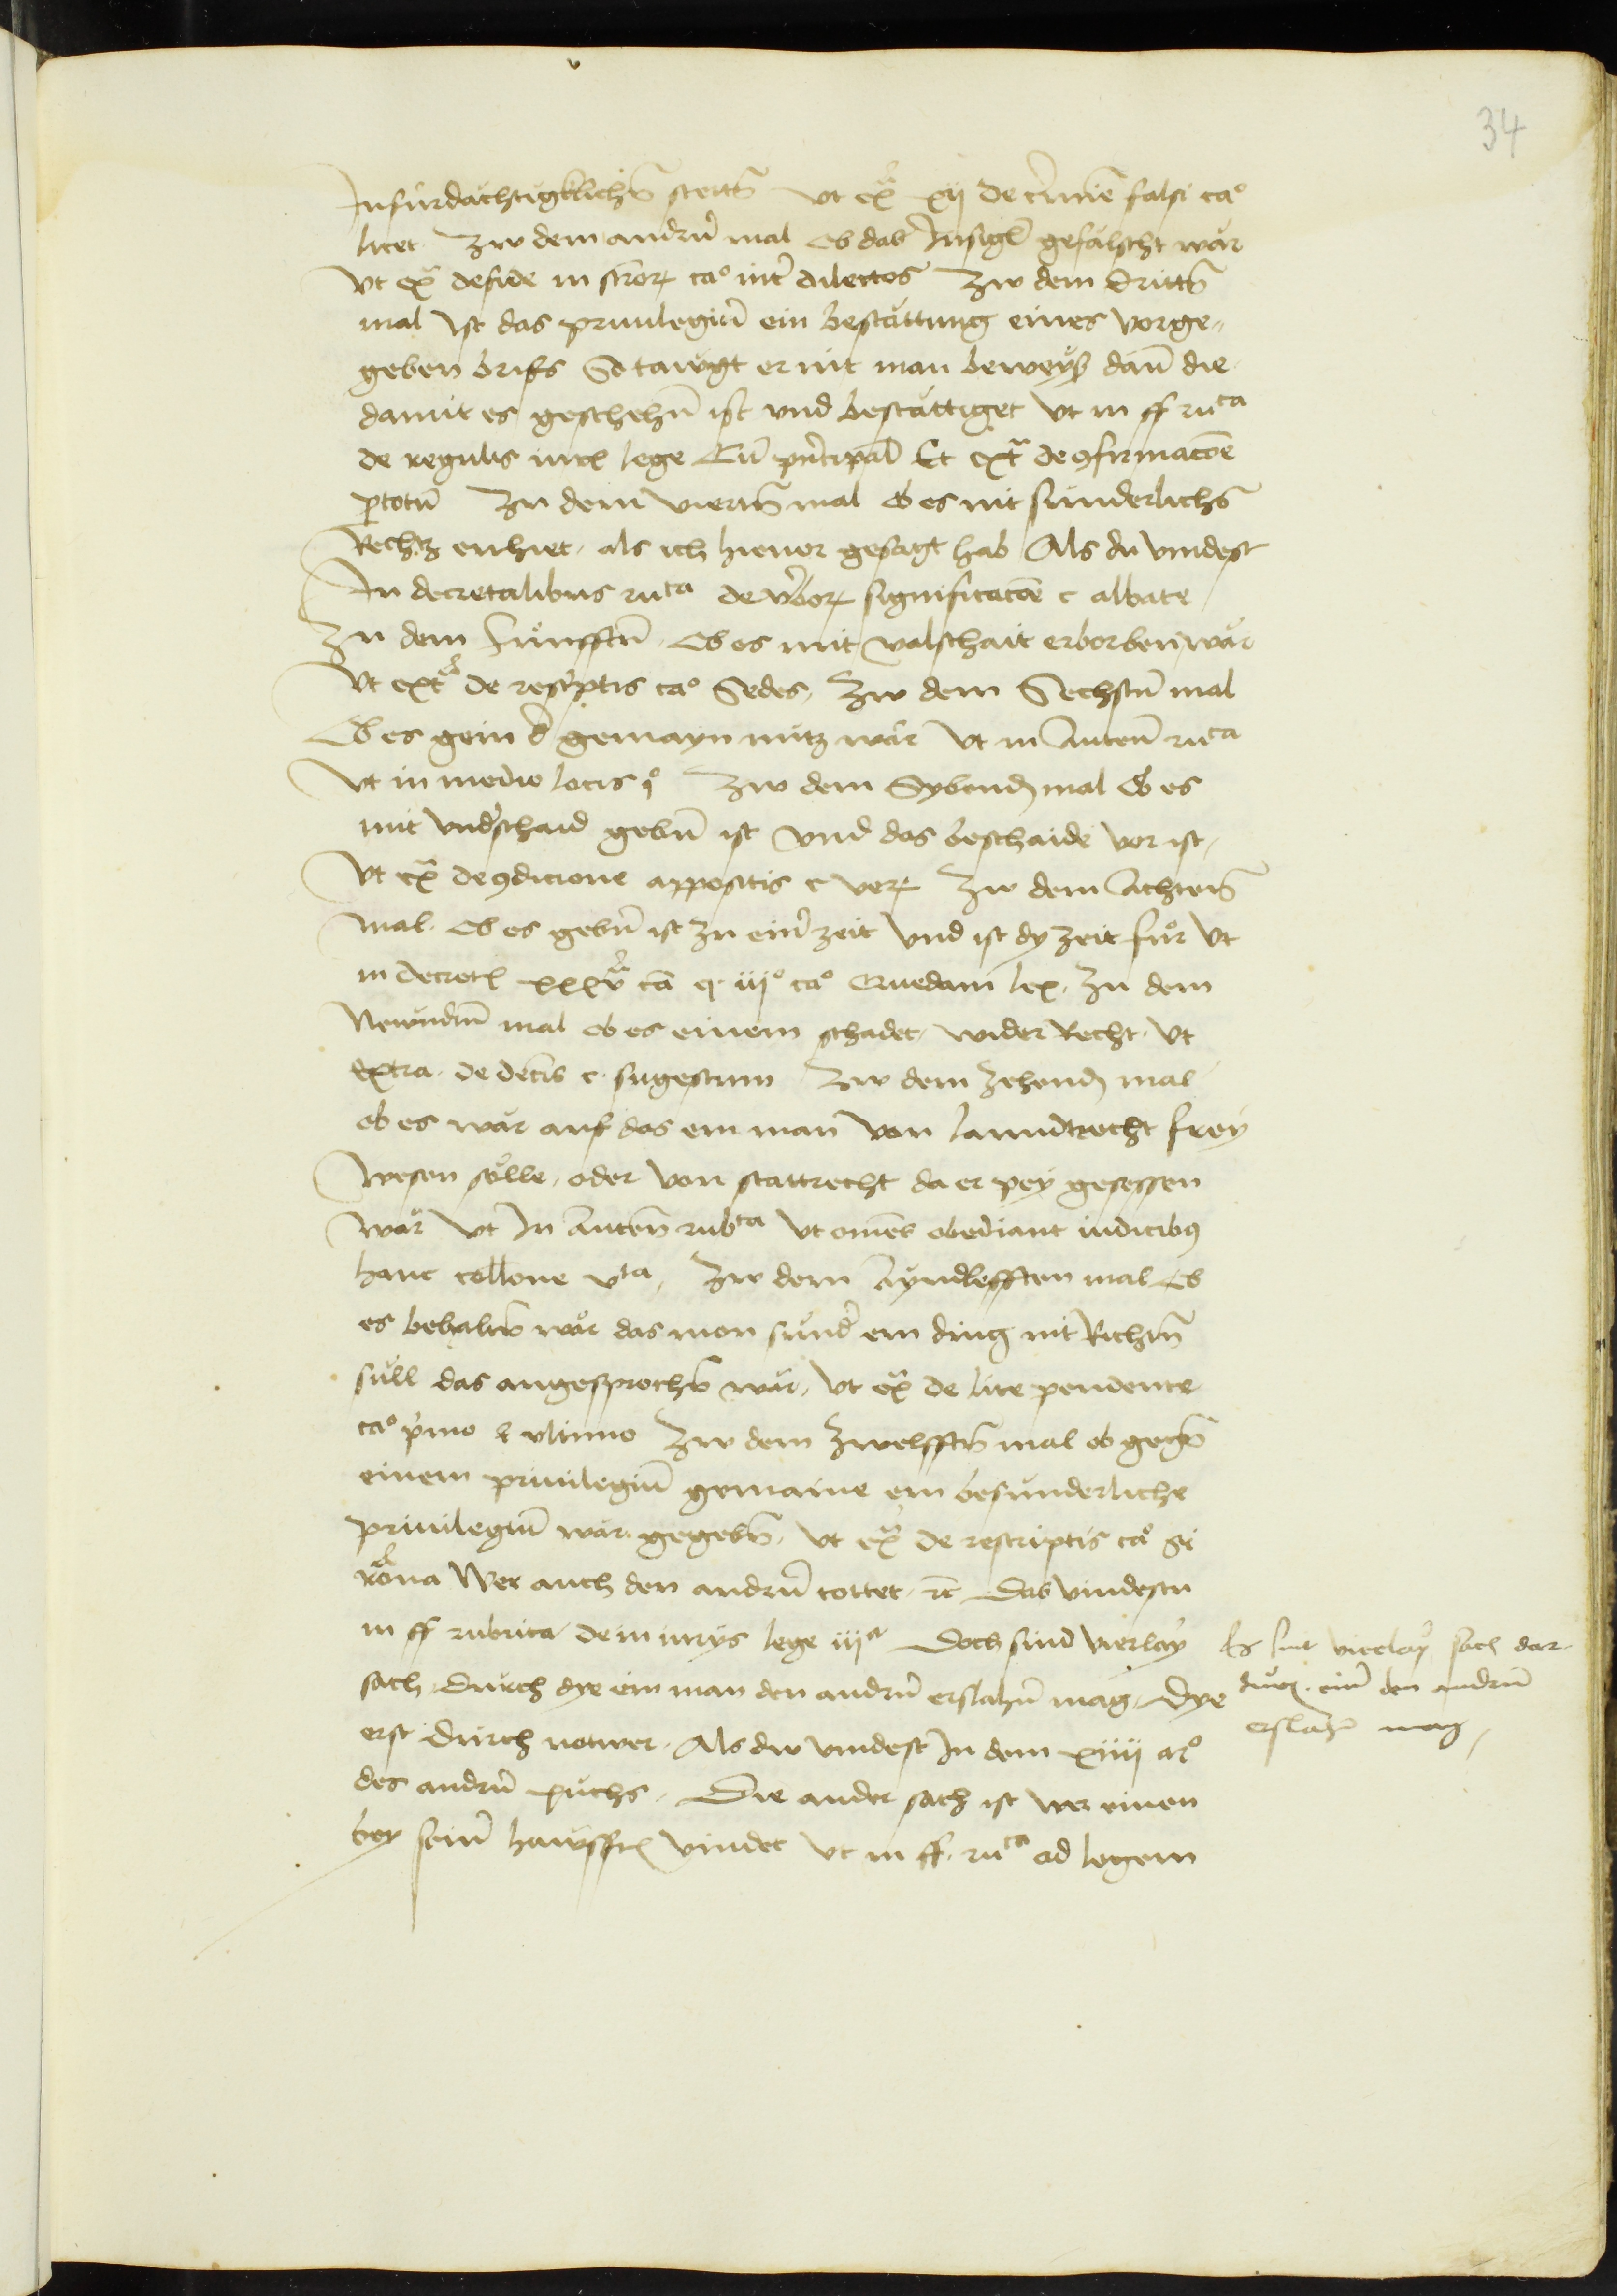 34
Jn fürdächtigklichn̄ stettn̄ vt ex̄ xij de crimīe falsi cao
licet Zw dem andrn̄ mal Ob das Jnsigl gefälscht wär
Vt ex̄ de fide instror̄ cao inter dilectos Zw dem dritt̄n
mal ist das priuilegiū ein bestättung eines vorge-
geben brifs So tawgt er nit man beweyß dan̄ die
damit es geschehn̄ ist vnd bestättiget Vt in ff ruca
de regulis iur̄ lege Cū prīcipal Et extͣ de ꝯfirmacōe
ꝑ totū Zu dem viertn̄ mal Ob es nit sünderlichs
Rechtz enhiet, als ich hieuor gesagt hab Als du vindest
Jn decretalibus ruca de verbor̄ significacōe c abbate
Zu dem Fünfftn̄ Ob es mit valschait erborben wär
Vt extͣ de resc̄ptis cao Sedes, Zw dem Sechstn̄ mal
Ob es gein d̄ gemayn nutz wär Vt in Auten̄ ruca
Vt in medio locis io Zw dem Sybendn̄ mal Ob es
mit vnd̄schaid gebn̄ ist vnd das beschaide vor ist,
Vt ex̄ de ꝯdicione appositis c ver̄ Zw dem Achtn̄
mal Ob es gebn̄ ist zu einr̄ zeit Vnd ist dy zeit für Vt
in decret̄ xxxv cā q iijo cao Quedam lex, Zu dem
Newndn̄ mal ob es einem schadet, wider Recht, Vt
extra de decīs c. sugestum Zw dem Zehendn̄ mal
ob es wär auf das ein man von lanndtrecht frey
wesen sölle, oder von stattrecht da er pey gesessen
wär Vt Jn Auten̄ rubca Vt omēs obediant iudicibꝯ
hanc collone vta, Zw dem Ayndlefften mal Ob
es behaltn̄ wär das mon sund̄ ein ding nit Richtn̄
süll das angesprochn̄ wär, Vt ex̄ de lite pendente
cao prīmo & vltimo Zw dem Zwelfftn̄ mal ob gegn̄
einem priuilegiū gemaine ein besunderliche
priuilegiū wär gegebn̄, Vt ex̄ de rescriptis cao
Wer auch den andrn̄ tottet, rc Das vindestu
in ff rubrica de iniurijs lege iija Doch sind vierlay
sach, durch dye ein man den andrn̄ erslahn̄ mag, Dye
erst durch notwer, Als dw vindest Jn dem xiiij aro
des andrn̄ puchs, Die ander sach ist wer einen
bey seinr̄ hawsffr̄ vindet Vt in ff. ruca ad legem
Es sint vierlay sach dar-
durch einr̄ den andrn̄
erslahn̄ mag,